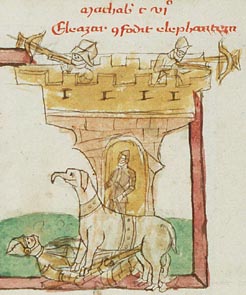 machab' c vi°
Eleazar 9fodit elephantem